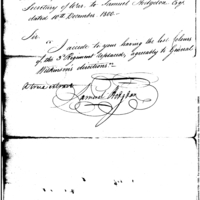 Secretary of War, to Samuel Hodgdon Esqr.
dated 10th December 1800.
Sir,
"I accede to your having the lost Colours
of the 3d Regiment replaced, agreeably to General
Wilkinson's directions"
A true extract
Samuel Hodgdon